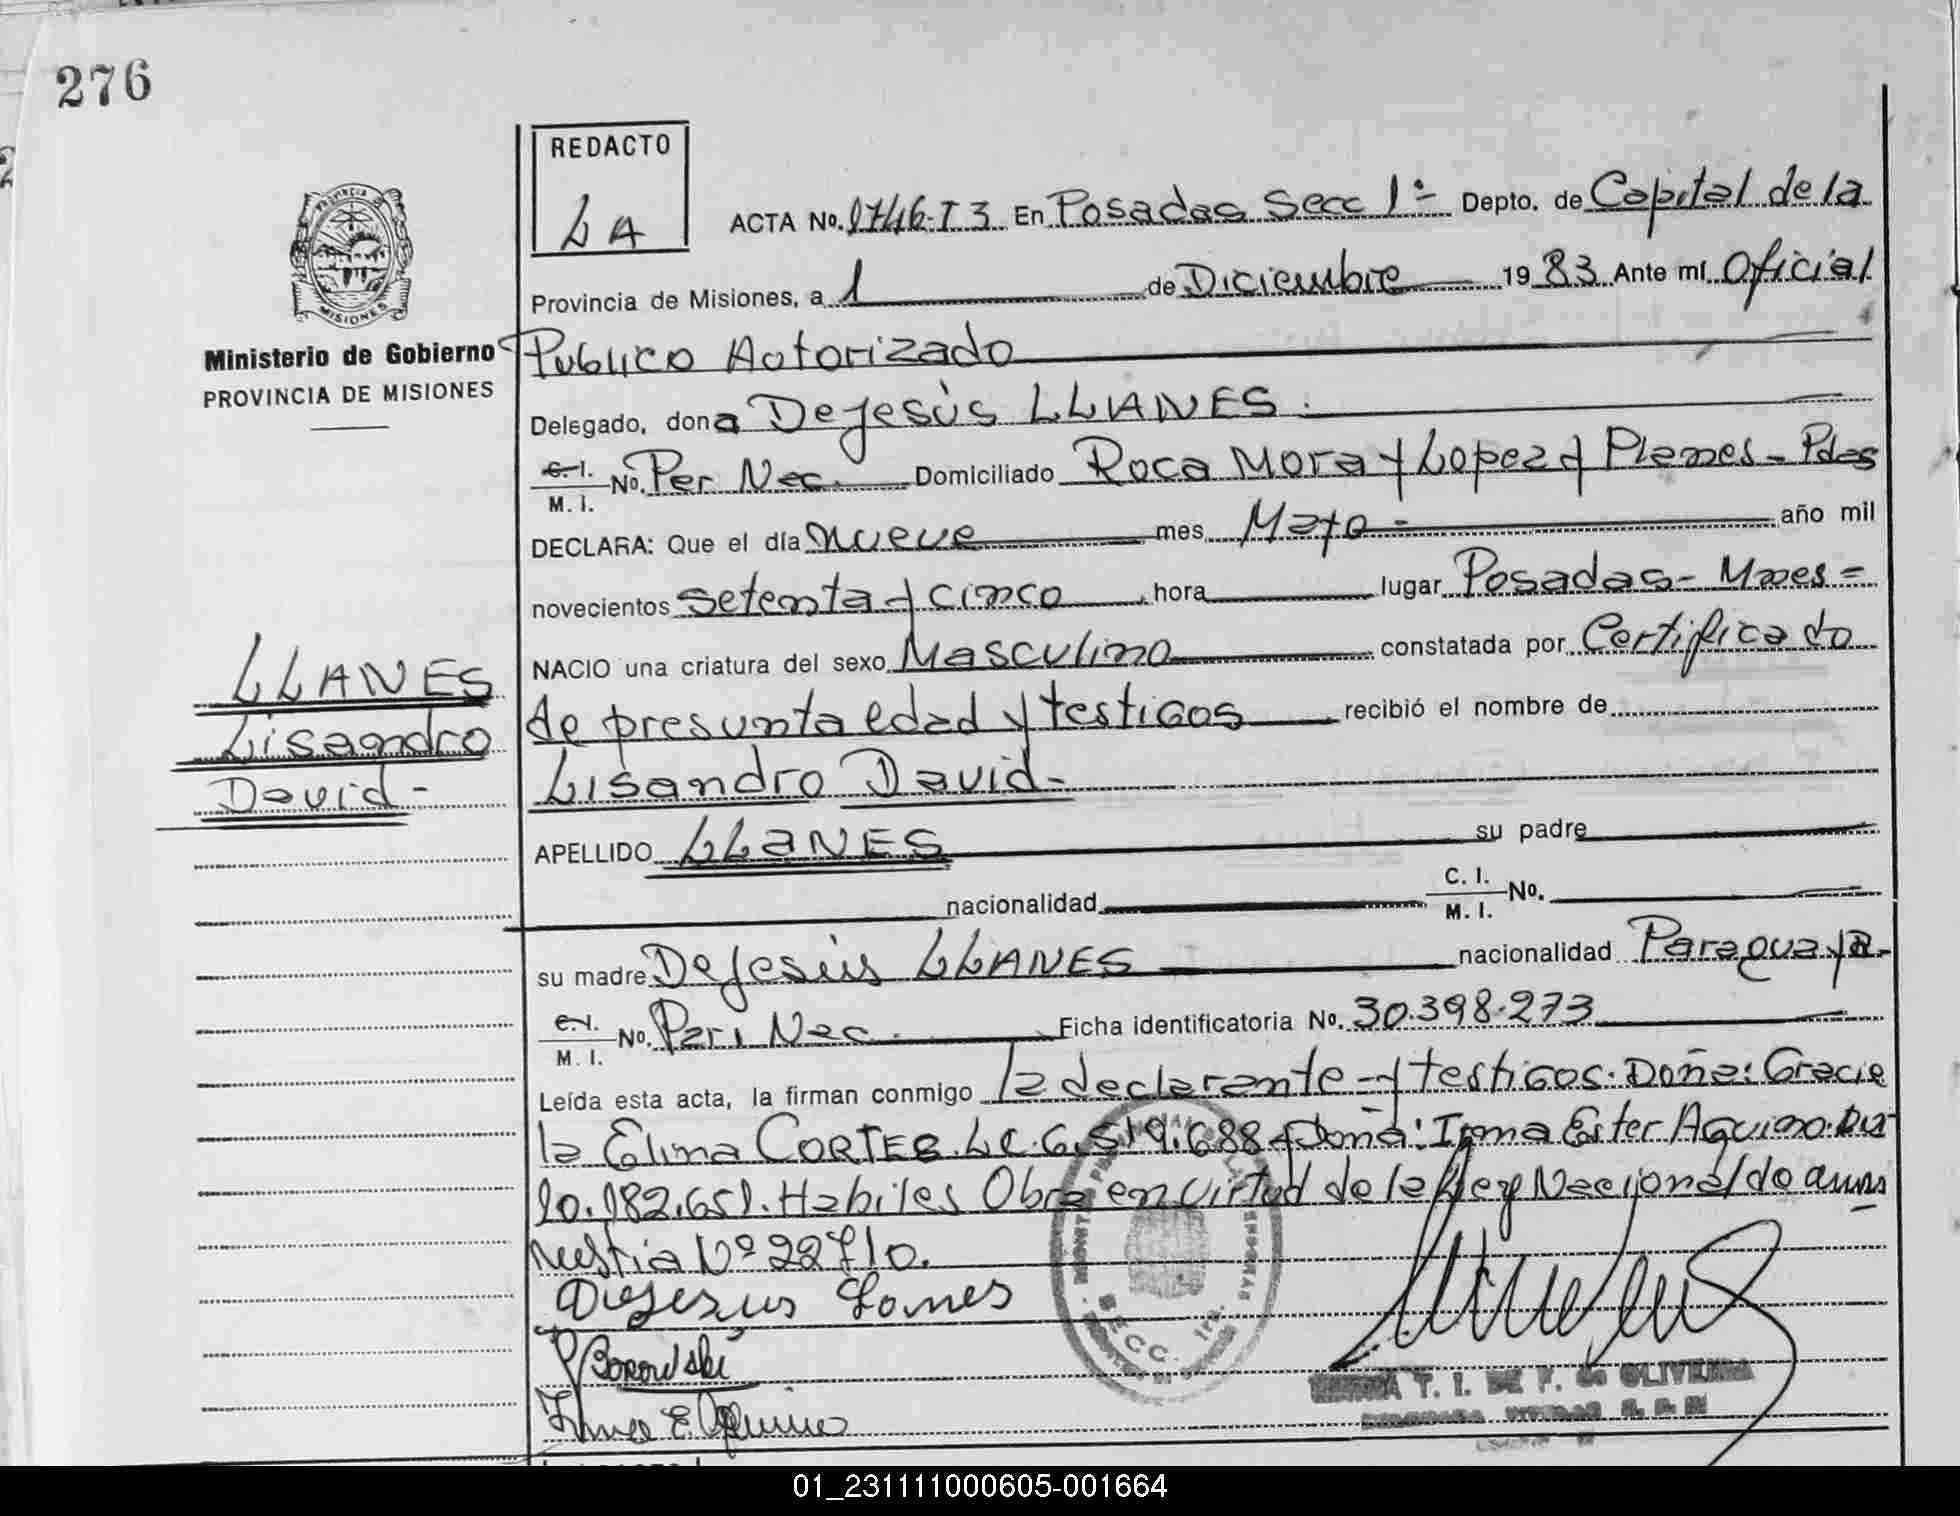 276
REDACTO
LA
ACTA No. 1746-T3 En Posadas Secc 1ª Depto. de Capital de la
Provincia de Misiones, a 1 de Diciembre 1983 Ante mí Oficial
Publico Autorizado
PROVINCIA
MISIONES
Ministerio de Gobierno
PROVINCIA DE MISIONES
Delegado, dona DeJesús LLANES.
C. I.
M. I.
No. Per Nec. Domiciliado Roca Mora y Lopez y Planes - Pdas
DECLARA: Que el día nueve mes Mayo - año mil
novecientos setenta y cinco hora lugar Posadas - Mnes =
NACIO una criatura del sexo Masculino constatada por Certificado
de presunta edad y testigos recibió el nombre de
Lisandro David -
LLANES
Lisandro
David -
APELLIDO LLANES su padre
nacionalidad C. I.
M. I. No.
su madre DeJesús LLANES nacionalidad Paraguaya -
C. I.
M. I.
No. Per Nec. Ficha identificatoria No. 30.398.273
Leída esta acta, la firman conmigo la declarante y testigos. Doña: Gracie
la Elina CORTES. L.C. 6.519.688 y Doña: Irma Ester Aquino. DNI
10.182.651. Habiles Obra en virtud de la Ley Nacional de amnis
Nº 22710.
DeJesus Lanes
Borowski
Irma E. Aquino
SECC. 1ra.
T. I. DE F. DE OLIVEIRA
01_231111000605-001664